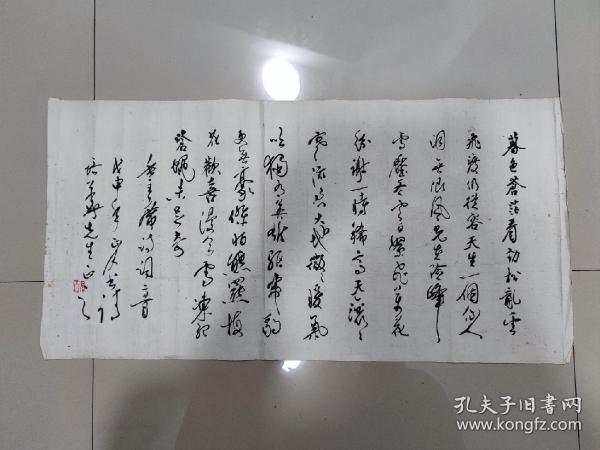 暮色蒼茫看劲松亂雲
飛渡仍從容天生一個仙人
洞無限風光在險峰
雪壓冬雲白絮飛萬花
紛謝一時稀高天滚滚
寒流急大地微微暖氣
吹獨有英雄驅虎豹
更無豪傑怕熊羆梅
花歡喜漫天雪凍死
蒼蠅未足奇
毛主席詩詞二首
戊申年
培華先生正之
孔夫子旧书网
www.kongfz.com